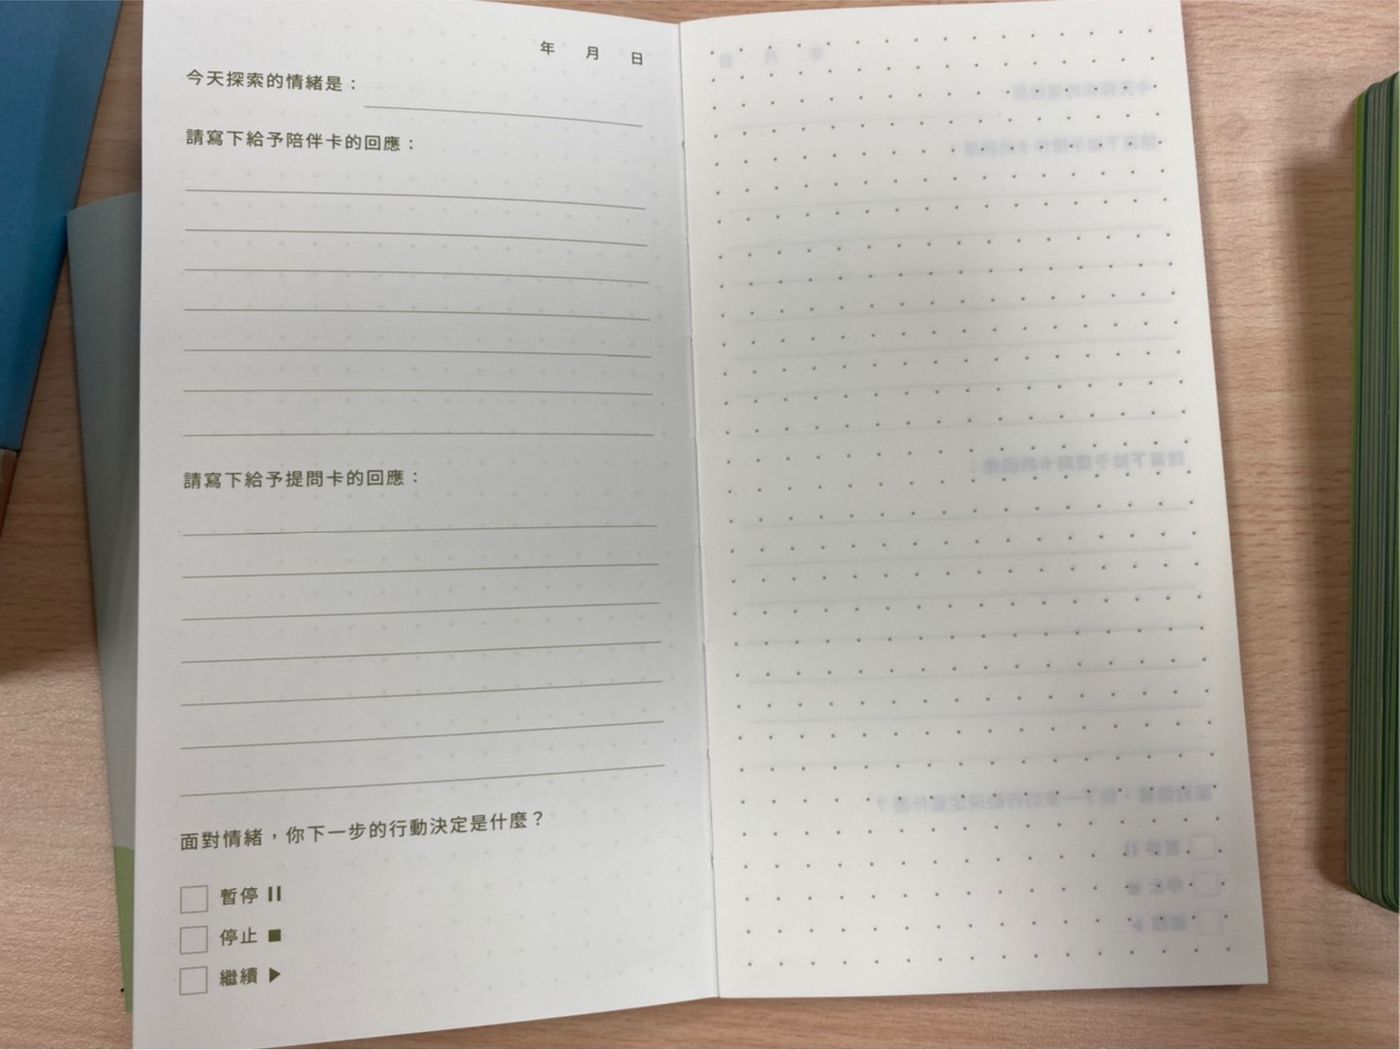 年 月 日
今天探索的情緒是：
請寫下給予陪伴卡的回應：
請寫下給予提問卡的回應：
面對情緒，你下一步的行動決定是什麼？
暫停
停止
繼續